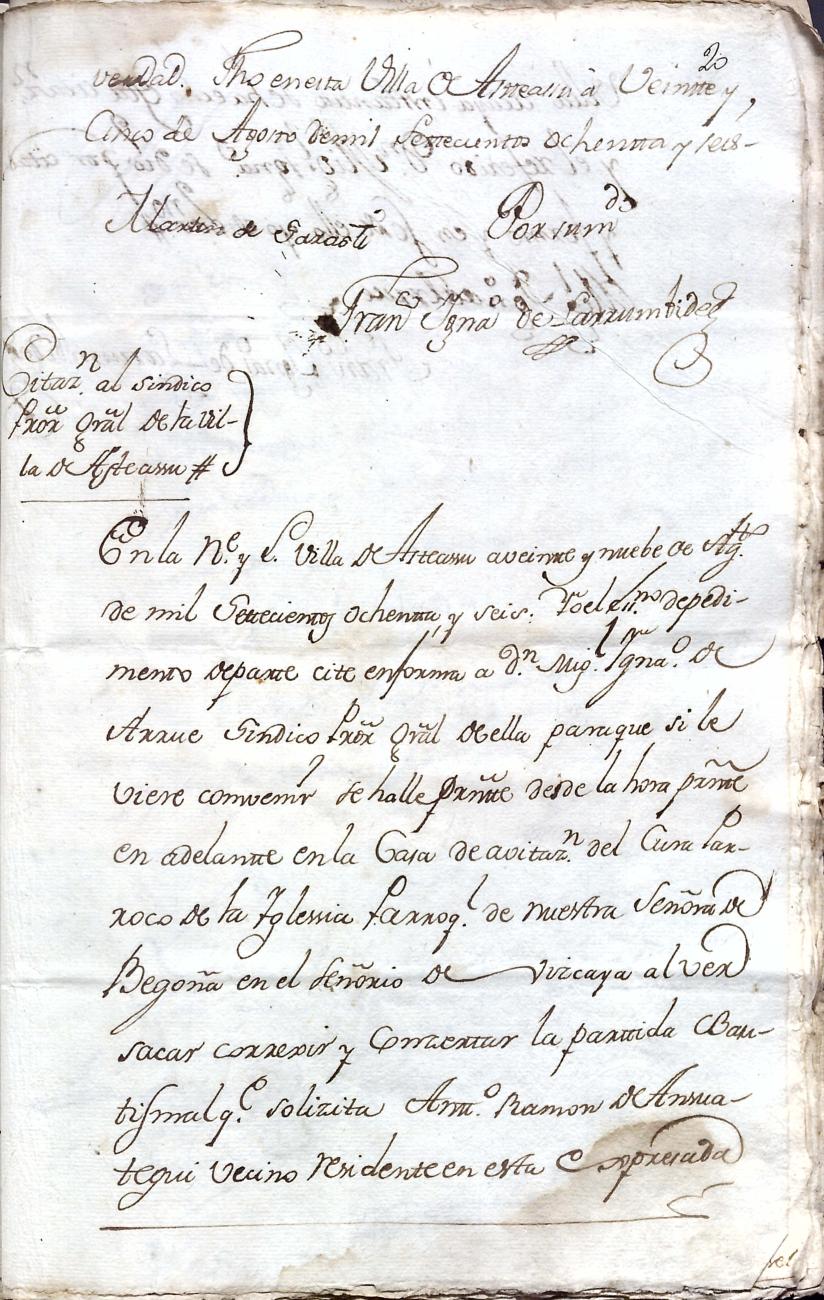 20
verdad. Fho en esta Villa de Asteasu a Veinte y
Cinco de Agosto de mil Settecientos ochentta y seis-
Martin de Garasti Por su md
Franco Ignao de Larrumbide
Citazn al sindico
Pror Gral de la Vil-
la de Asteasu #
En la Ne. y L. Villa de Asteasu a veinte y nuebe de Agto
de mil Settecientos ochentta y seis: Yo el essno de pedi-
mento de parte cite en forma a Dn Migl Ignao de
Arrue Sindico Pror Gral de ella para que si le
viere convenir se halle prnte desde la hora prnte
en adelantte en la Casa de avitazn del Cura Par-
roco de la Yglessia Parroql de nuestra Señora de
Begoña en el señorio de Vizcaya al ver
sacar correxir y Conzertar la partida Bau-
tismal qe solizita Antto Ramon de Ansua-
tegui vecino residente en esta expresada